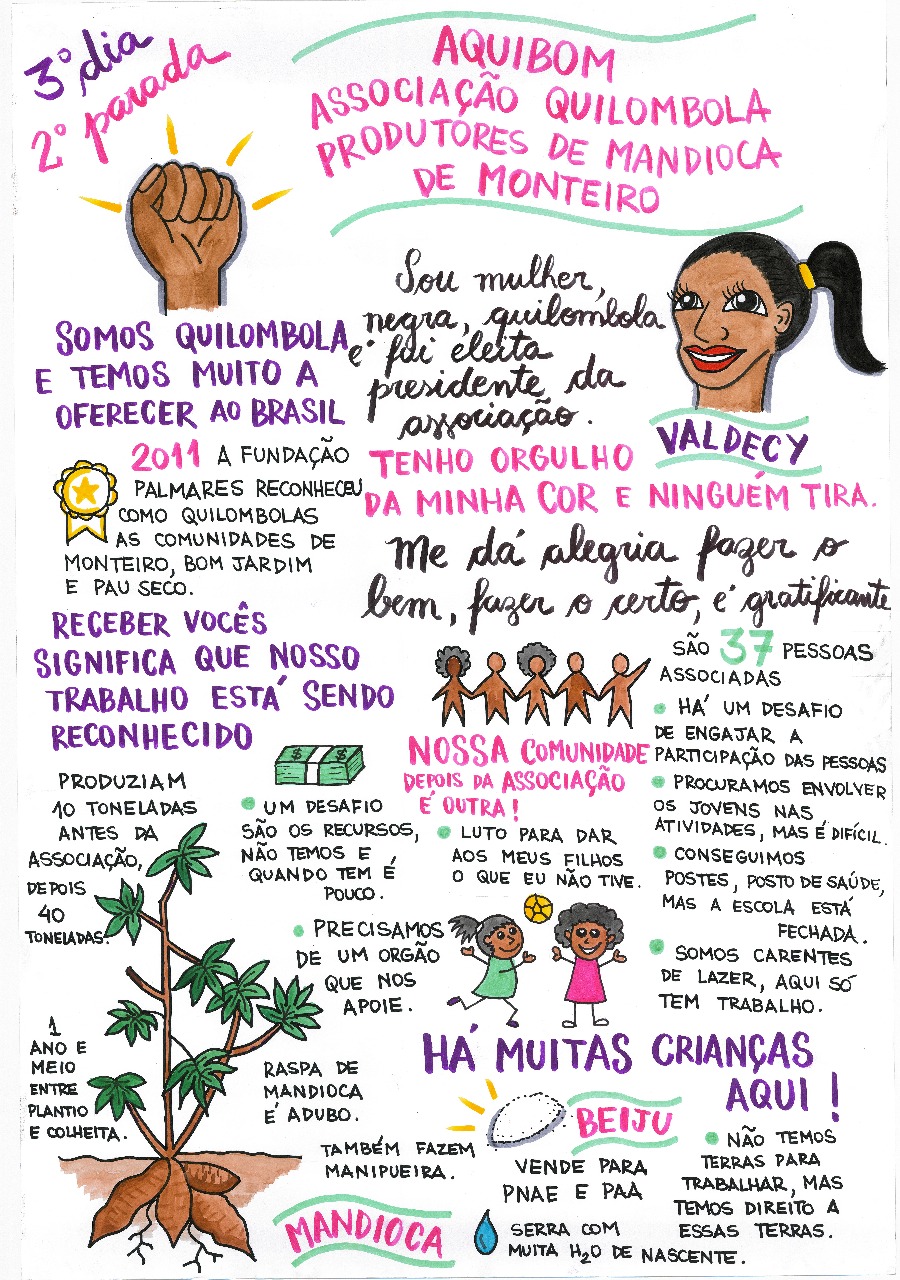 3º dia
2º parada
AQUIBOM
ASSOCIAÇÃO QUILOMBOLA
PRODUTORES DE MANDIOCA
DE MONTEIRO
SOMOS QUILOMBOLA
E TEMOS MUITO A
OFERECER AO BRASIL
Sou mulher,
negra, quilombola
e fui eleita
presidente da
associação.
VALDECY
TENHO ORGULHO
DA MINHA COR E NINGUÉM TIRA.
Me dá alegria fazer o
bem, fazer o certo, é gratificante
2011 A FUNDAÇÃO
PALMARES RECONHECEU
COMO QUILOMBOLAS
AS COMUNIDADES DE
MONTEIRO, BOM JARDIM
E PAU SECO.
RECEBER VOCÊS
SIGNIFICA QUE NOSSO
TRABALHO ESTÁ SENDO
RECONHECIDO
SÃO 37 PESSOAS
ASSOCIADAS
HÁ UM DESAFIO
DE ENGAJAR A
PARTICIPAÇÃO DAS PESSOAS
PROCURAMOS ENVOLVER
OS JOVENS NAS
ATIVIDADES, MAS É DIFÍCIL.
CONSEGUIMOS
POSTES, POSTO DE SAÚDE,
MAS A ESCOLA ESTÁ
FECHADA.
SOMOS CARENTES
DE LAZER, AQUI SÓ
TEM TRABALHO.
NOSSA COMUNIDADE
DEPOIS DA ASSOCIAÇÃO
É OUTRA!
LUTO PARA DAR
AOS MEUS FILHOS
O QUE EU NÃO TIVE.
$ $
UM DESAFIO
SÃO OS RECURSOS,
NÃO TEMOS E
QUANDO TEM É
POUCO.
PRECISAMOS
DE UM ORGÃO
QUE NOS
APOIE.
PRODUZIAM
10 TONELADAS
ANTES DA
ASSOCIAÇÃO,
DEPOIS
40
TONELADAS.
1
ANO E
MEIO
ENTRE
PLANTIO
E COLHEITA.
RASPA DE
MANDIOCA
É ADUBO.
TAMBÉM FAZEM
MANIPUEIRA.
MANDIOCA
HÁ MUITAS CRIANÇAS
AQUI!
BEIJU
VENDE PARA
PNAE E PAA
SERRA COM
MUITA H2O DE NASCENTE.
NÃO TEMOS
TERRAS PARA
TRABALHAR, MAS
TEMOS DIREITO A
ESSAS TERRAS.